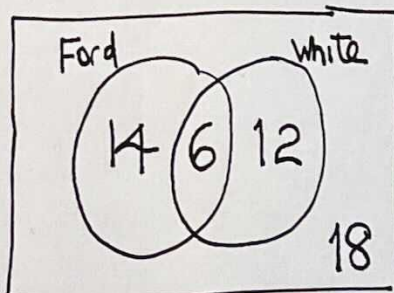 Ford white
14 6 12
18